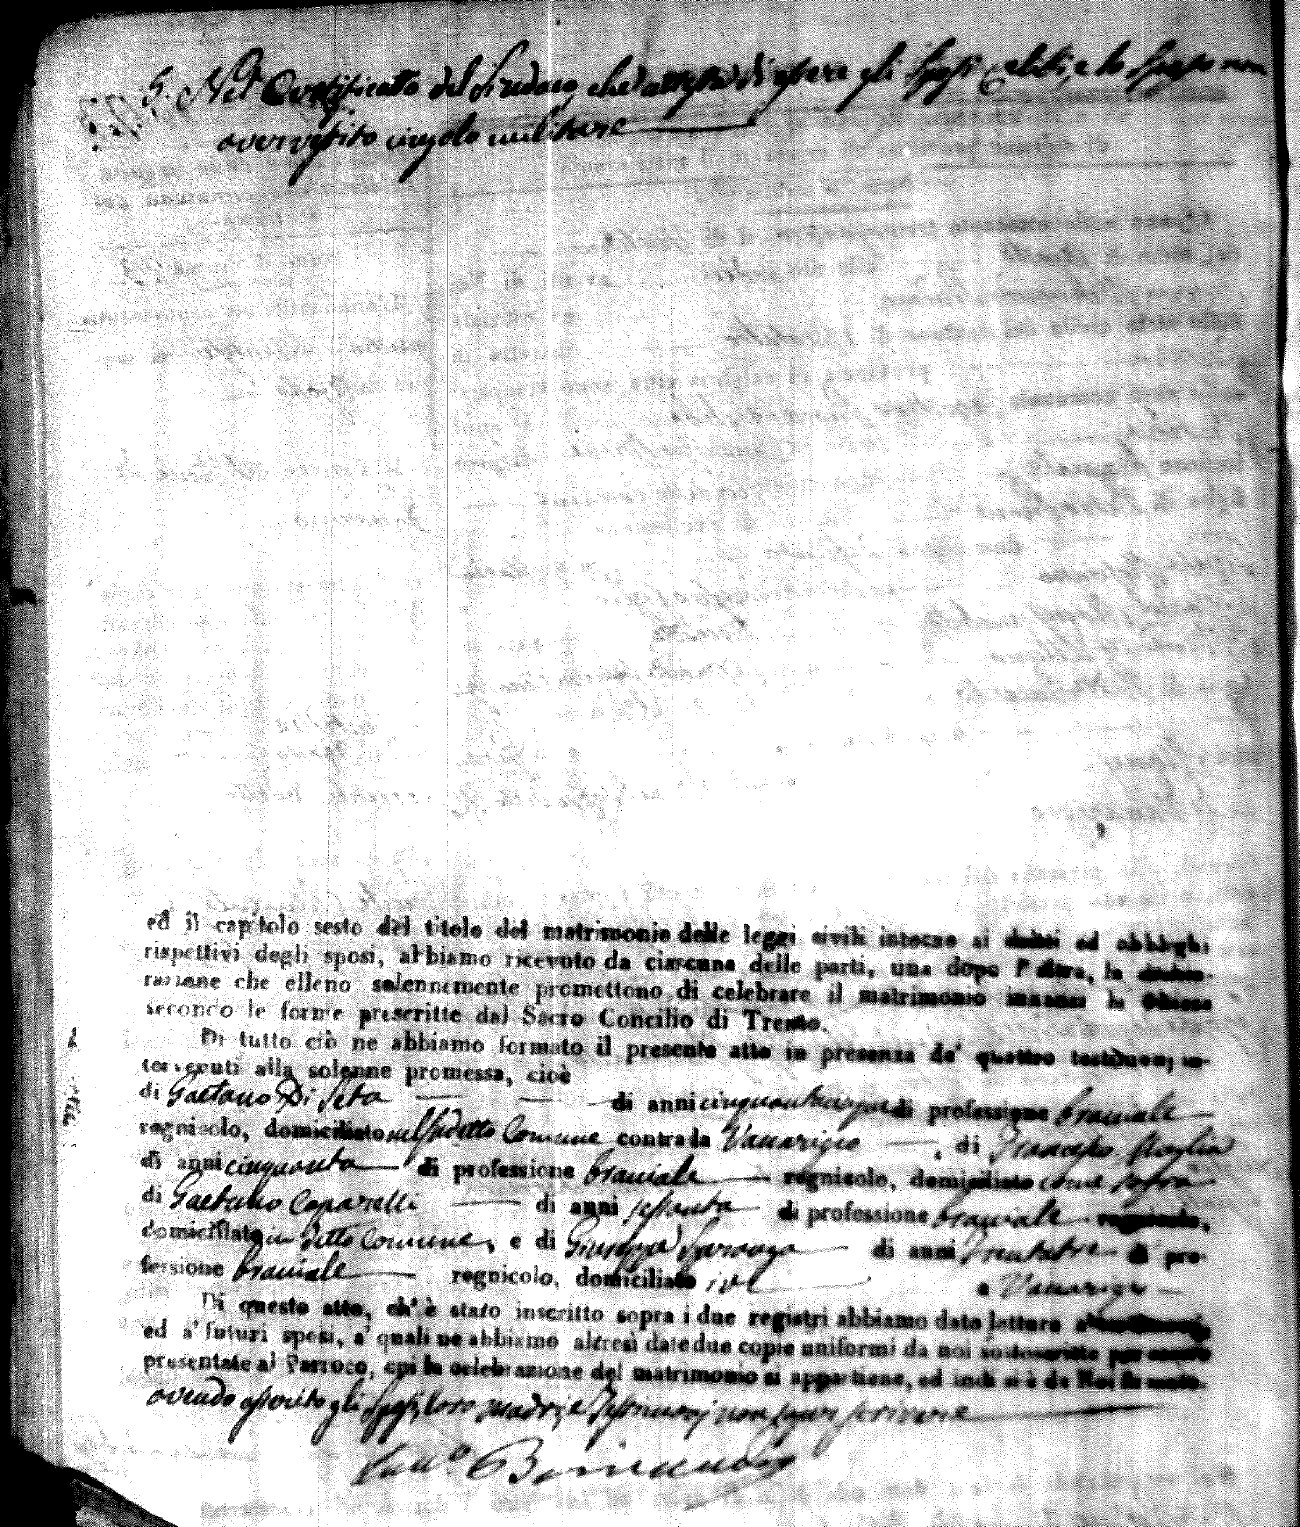 5. Nel Certificato del Sindaco, che attesta di essere gli Sposi celibi, e lo Sposo non
aver vestito cingolo militare
ed il capitolo sesto del titolo del matrimonio delle leggi civili intorno ai diritti ed obblighi
rispettivi degli sposi, abbiamo ricevuto da ciascuna delle parti, una dopo l'altra, la dichia-
razione che elleno solennemente promettono di celebrare il matrimonio innanzi la Chiesa
secondo le forme prescritte dal Sacro Concilio di Trento.
Di tutto ciò ne abbiamo formato il presente atto in presenza de' quattro testimonj in-
tervenuti alla solenne promessa, cioè
di Gaetano Di Seta di anni cinquantacinque di professione bracciale
regnicolo, domiciliato nel sudetto Comune contrada Vanarizio, di Francesco
di anni cinquanta di professione bracciale regnicolo, domiciliato come sopra
di Gaetano Caparelli di anni sessanta di professione bracciale regnicolo,
domiciliato in detto Comune, e di Giuseppe Sparanza di anni trentatre di pro-
fessione bracciale regnicolo, domiciliato ivi a
Di questo atto, ch'è stato inscritto sopra i due registri abbiamo dato lettura a' testimonj
ed a' futuri sposi, a' quali ne abbiamo altresì date due copie uniformi da noi sottoscritte per essere
presentate al Parroco, cui la celebrazione del matrimonio si appartiene, ed indi si è da Noi firmato.
avendo asserito gli Sposi, loro madri, e Testimonj non saper scrivere